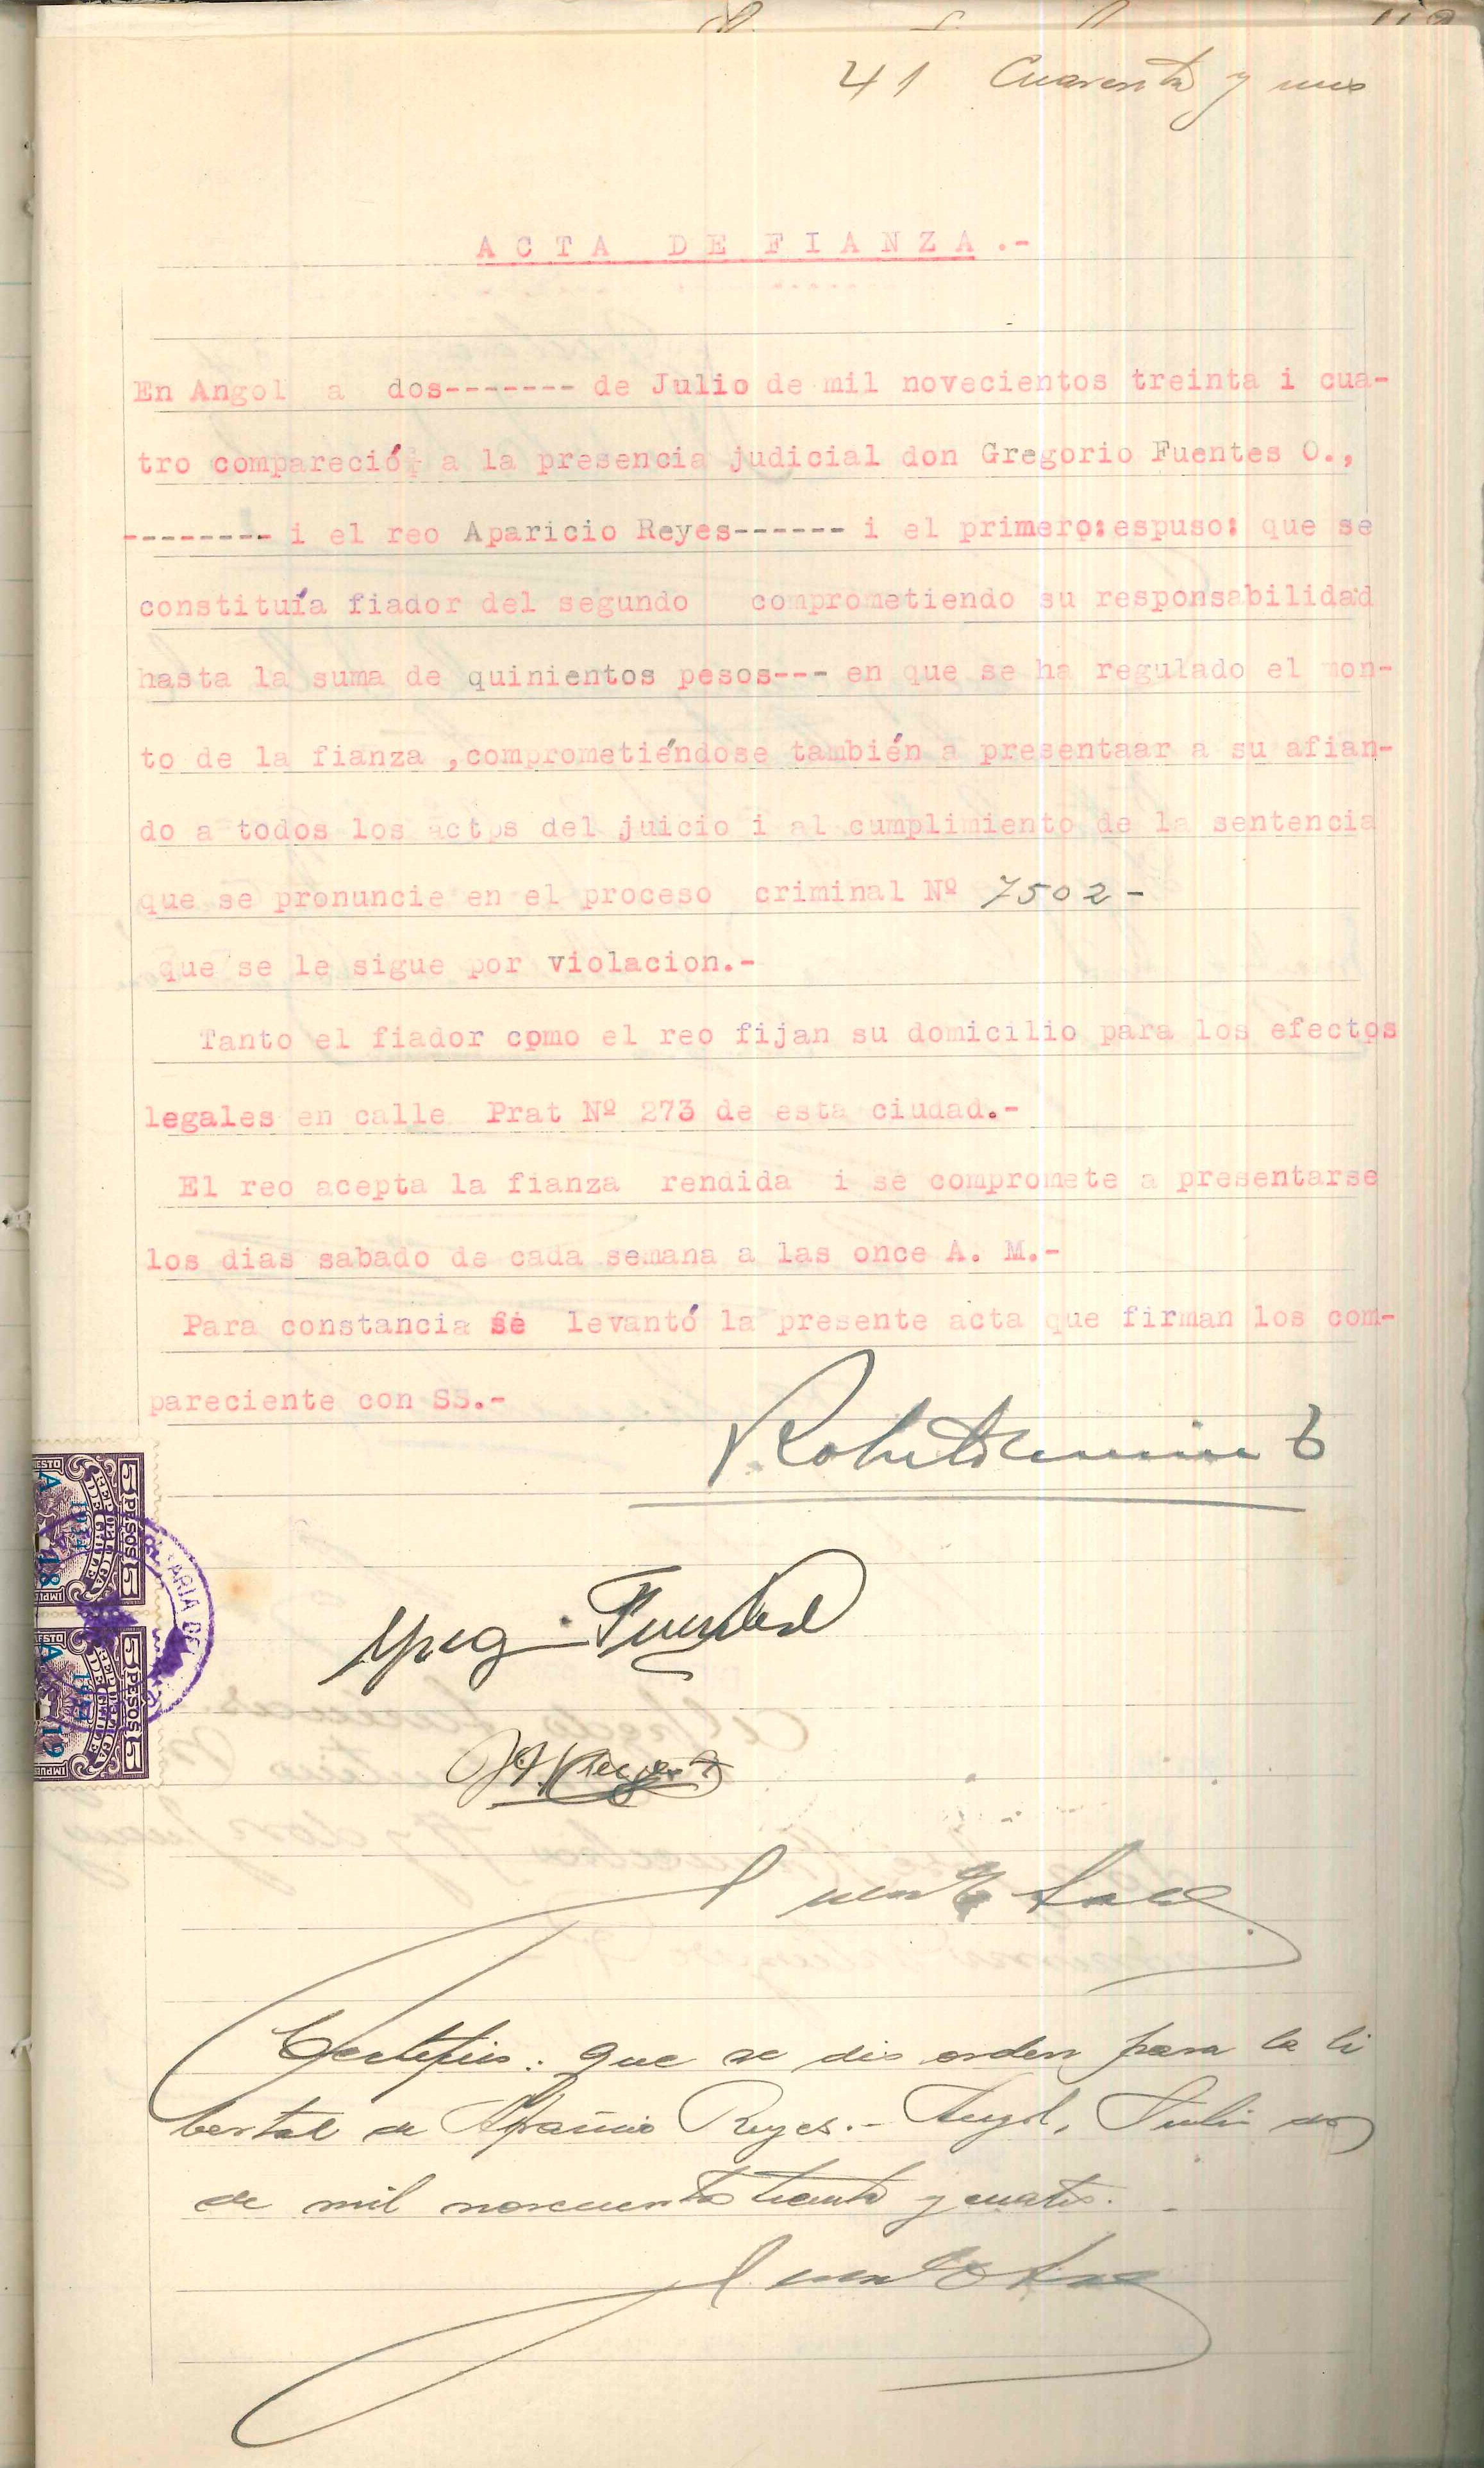 41 Cuarenta y uno
ACTA DE FIANZA.-
En Angol a dos------- de Julio de mil novecientos treinta i cua-
tro compareció a la presencia judicial don Gregorio Fuentes O.,
-------- i el reo Aparicio Reyes------ i el primero:espuso: que se
constituía fiador del segundo comprometiendo su responsabilidad
hasta la suma de quinientos pesos--- en que se ha regulado el mon-
to de la fianza ,comprometiéndose también a presentaar a su afian-
do a todos los actos del juicio i al cumplimiento de la sentencia
que se pronuncie en el proceso criminal Nº 7502-
que se le sigue por violacion.-
Tanto el fiador como el reo fijan su domicilio para los efectos
legales en calle Prat Nº 273 de esta ciudad.-
El reo acepta la fianza rendida i se compromete a presentarse
los dias sabado de cada semana a las once A. M.-
Para constancia se levantó la presente acta que firman los com-
pareciente con SS.-
5 PESOS 5
REPUBLICA DE CHILE
A 18
5 PESOS 5
REPUBLICA DE CHILE
A 19
Greg Fuentes
Certifico: que se dio orden para la li
bertad de Aparicio Reyes.- Angol, Julio dos
de mil novecientos treinta y cuatro.-